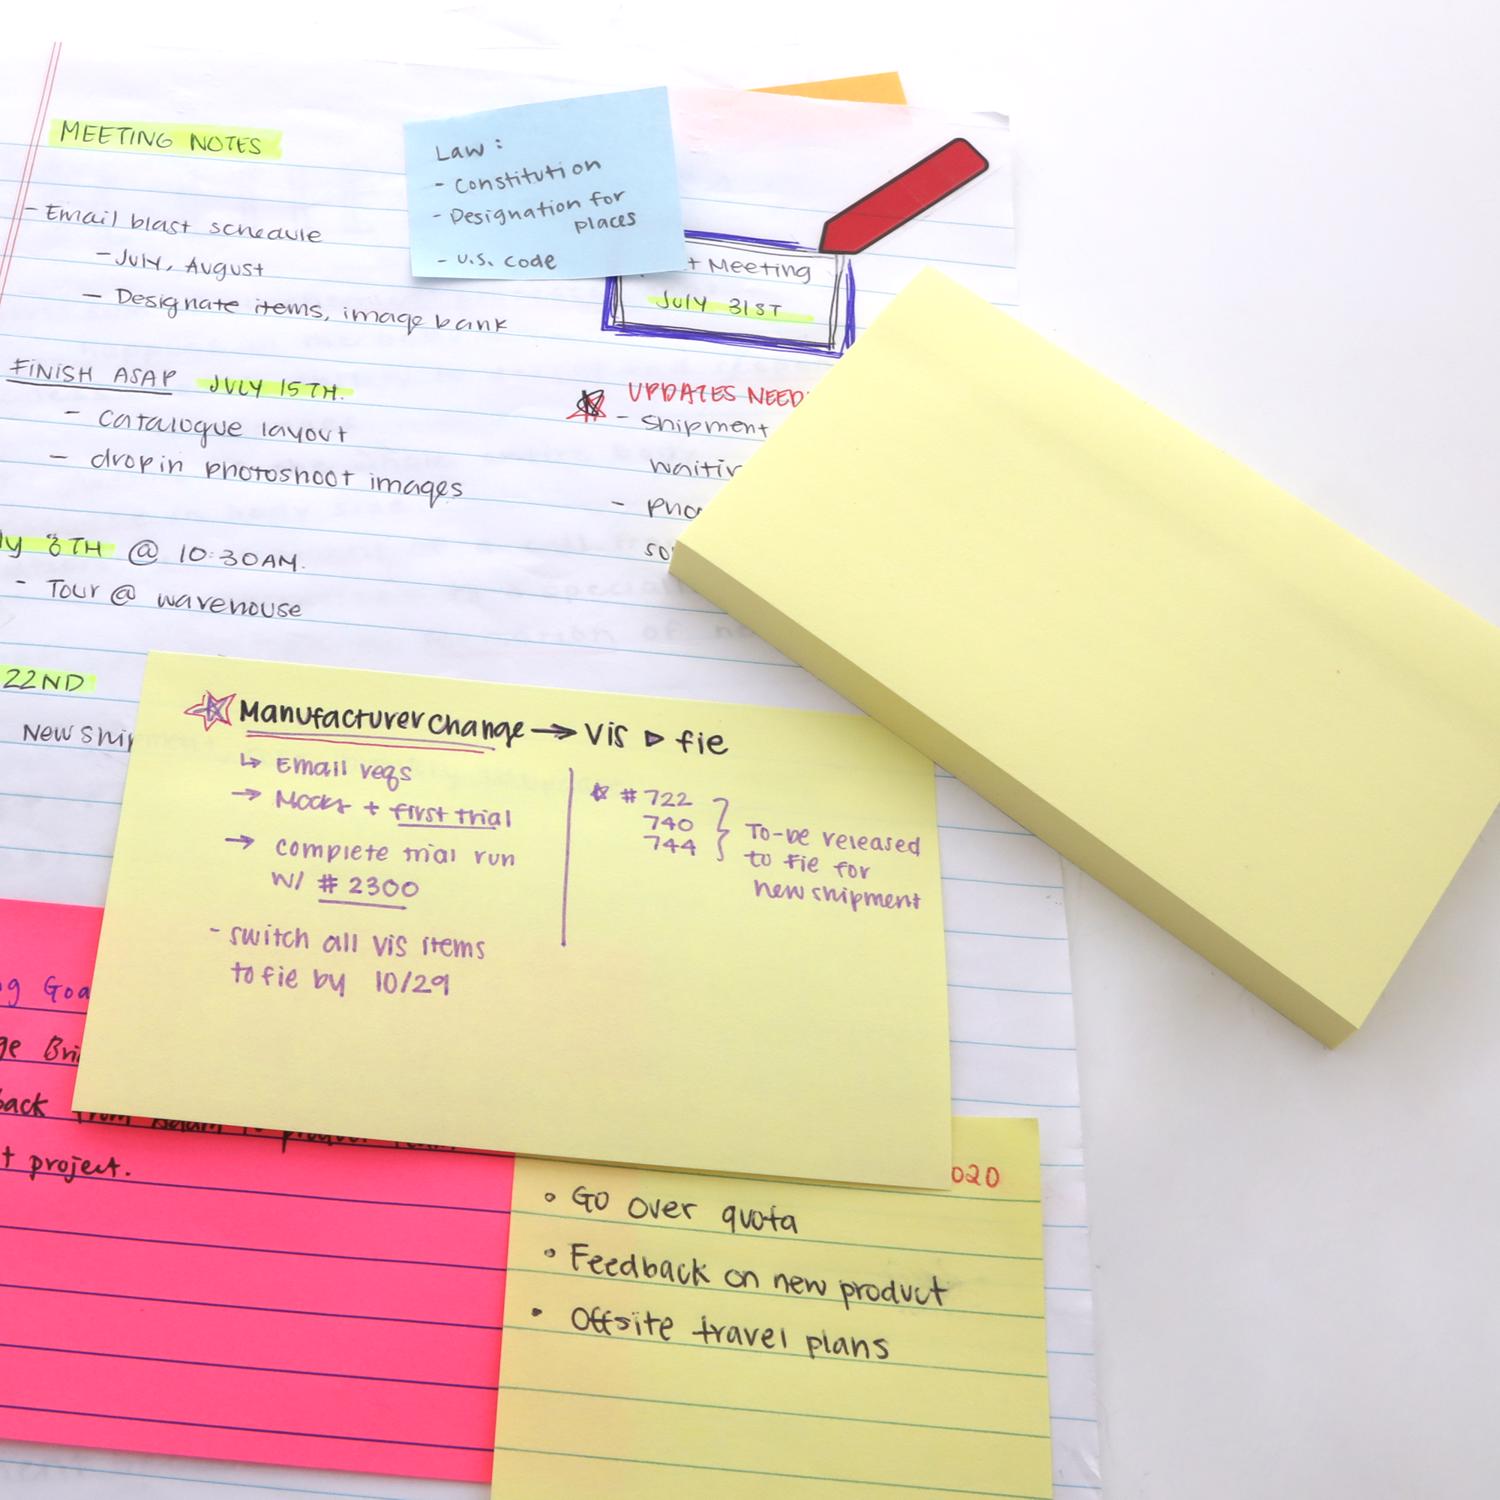 MEETING NOTES
- Email blast schedule
- July, August
- Designate items, image bank
FINISH ASAP JULY 15TH.
- catalogue layout
- drop in photoshoot images
8TH @ 10:30AM.
- Tour @ warehouse
22ND
New
Law:
- Constitution
- Designation for
places
- U.S. Code
Meeting
July 31ST
UPDATES
- shipment
Manufacturer change → Vis ▷ fie
↳ Email reqs
→ Mocks + first trial
→ complete trial run
w/ # 2300
- switch all Vis items
to fie by 10/29
# 722
740
744
To-be released
to fie for
new shipment
project.
• Go over quota
• Feedback on new product
• Offsite travel plans